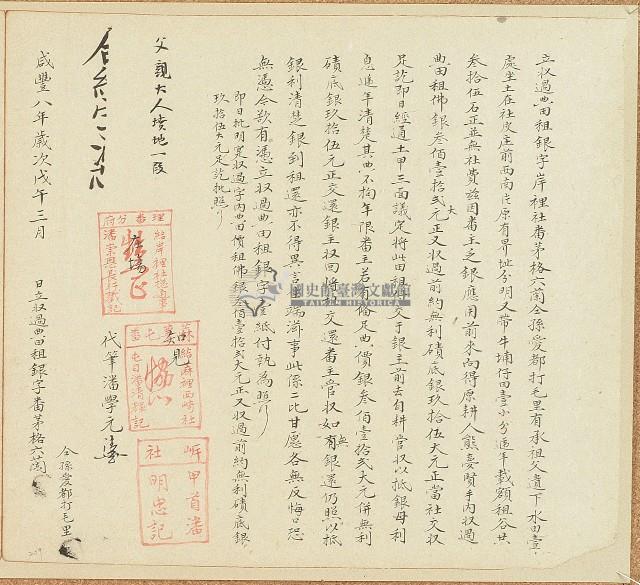 立収過典田租銀字岸裡社番茅格六萳仝孫愛都打毛里有承祖父遺下水田壹
處坐土在社皮庄前西南片原有界址分明又帶牛埔仔田壹小分逓年載額租谷共
叁拾伍石正並無社費茲因番主乏銀應用前來向得原耕人熊
手内収過
典田租佛銀叁佰壹拾弍大元正又収過前約無利磧底銀玖拾伍大元正當社交収
足訖即日經通土甲三面議定將此田租谷交于銀主前去自耕管収以抵銀母利
息逓年清楚其典不拘年限番主若有備足典價銀叁佰壹拾弍大元併無利
磧底銀玖拾伍元正交還銀主収回將
交還番主管収如無銀還仍照以抵
銀利清楚銀到租還亦不得異言
端滋事此係二比甘愿各無反悔口恐
無憑今欲有憑立収過典田租銀字壹紙付執為照
即日批明寔収過字内典田價租佛銀叁佰壹拾弍大元正又収過前約無利磧底銀
玖拾伍大元足訖批照
父親大人墳地一段
理番分府
給岸裡社
潘
記
在場
知見
番屯
給麻裡西崎社
屯目潘清
記
岸社
甲首潘明忠記
代筆潘學元
咸豐八年歲次戊午三月
日立収過典田租銀字番茅格六萳
仝孫愛都打毛里
國史館臺灣文獻館
TAIWAN HISTORICA